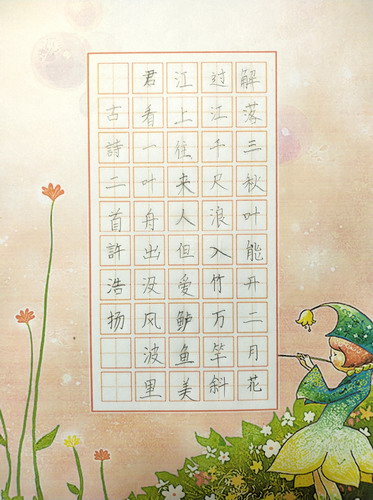 解落三秋叶能开二月花
过江千尺浪入竹万竿斜
江上往来人但爱鲈鱼美
君看一叶舟出没风波里
古詩二首許浩扬